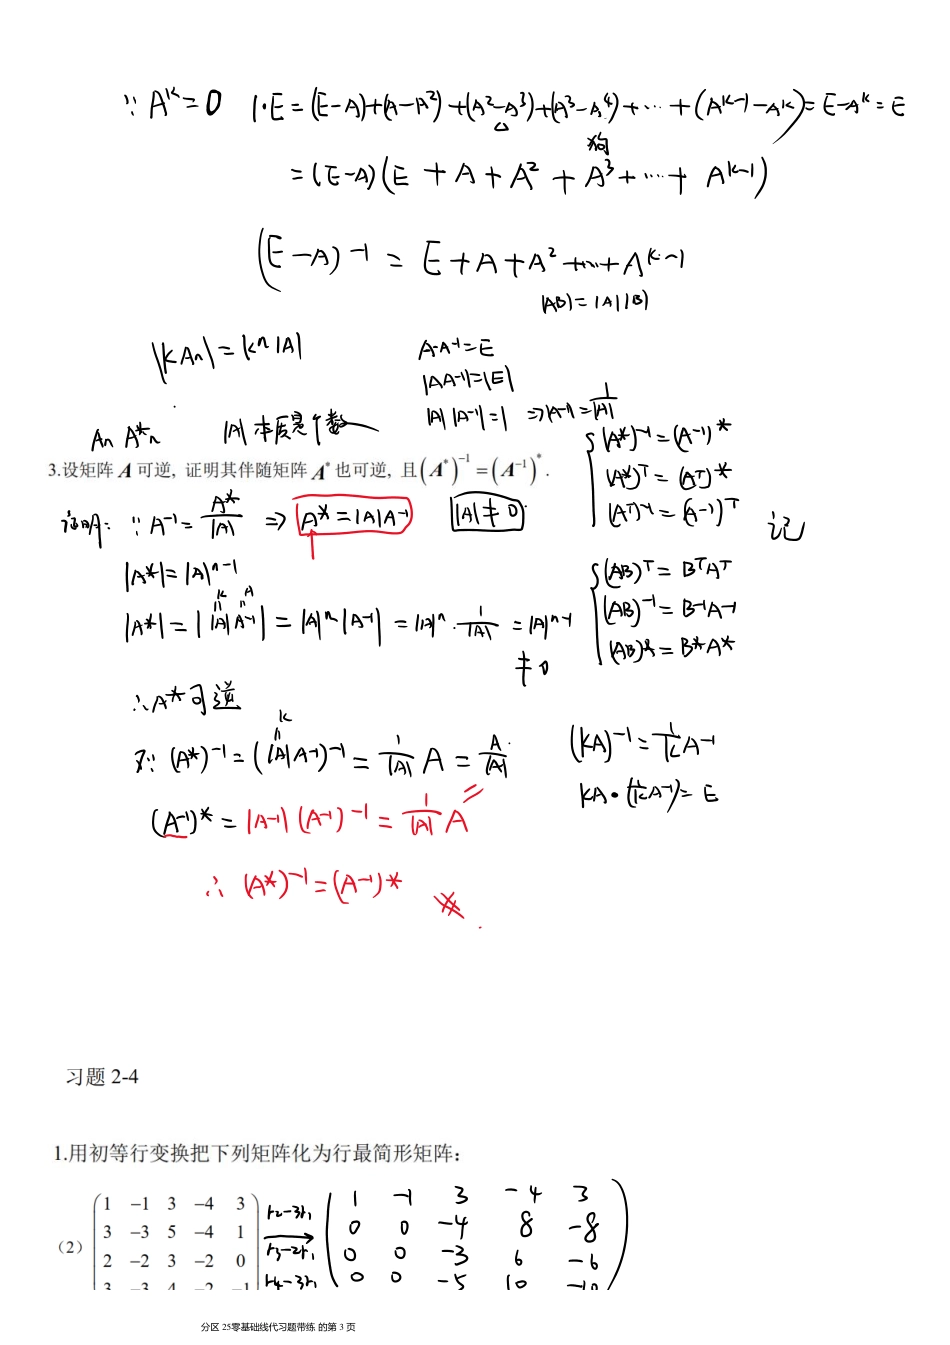 ∵ A^k=0 1·E=(E-A)+(A-A²)+(A²-A³)+(A³-A⁴)+…+(A^{k-1}-A^k)=E-A^k=E
狗
=(E-A)(E+A+A²+A³+…+A^{k-1})
(E-A)^{-1}=E+A+A²+…+A^{k-1}
|AB|=|A||B|
|kAn|=k^n|A|
A·A^{-1}=E
|AA^{-1}|=|E|
|A||A^{-1}|=1 ⇒|A^{-1}|=1/|A|
An A*n |A|本质是个数
3.设矩阵 A 可逆, 证明其伴随矩阵 A* 也可逆, 且(A*)^{-1}=(A^{-1})*.
(A*)^{-1}=(A^{-1})*
(A*)^T=(A^T)*
(A^T)^{-1}=(A^{-1})^T
记
证明: ∵A^{-1}=A*/|A| ⇒ A*=|A|A^{-1} |A|≠0
|A*|=|A|^{n-1}
k A
|A*|=||A|A^{-1}|=|A|^n|A^{-1}|=|A|^n·1/|A|=|A|^{n-1}
≠0
(AB)^T=B^TA^T
(AB)^{-1}=B^{-1}A^{-1}
(AB)*=B*A*
∴A*可逆
k
又∵(A*)^{-1}=(|A|A^{-1})^{-1}=1/|A| A=A/|A|
(kA)^{-1}=1/k A^{-1}
kA·(1/k A^{-1})=E
(A^{-1})*=|A^{-1}|(A^{-1})^{-1}=1/|A| A
∴(A*)^{-1}=(A^{-1})*
习题 2-4
1.用初等行变换把下列矩阵化为行最简形矩阵:
(2)
1 −1 3 −4 3
3 −3 5 −4 1
2 −2 3 −2 0
3 −3 4 −2 −1
r2-3r1
r3-2r1
r4-3r1
1 -1 3 -4 3
0 0 -4 8 -8
0 0 -3 6 -6
0 0 -5 10 -10
分区 25零基础线代习题带练 的第 3 页